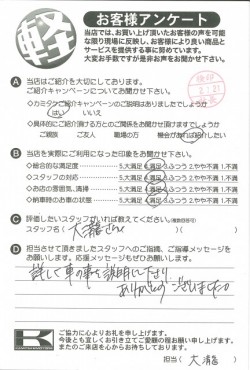 軽
お客様アンケート
当店では、お買い上げ頂いたお客様の声を可能
な限り現場に反映し、お客様により良い商品と
サービスを提供する事に努めています。
大変お手数ですが是非お声をお聞かせ下さい。
A 当店はご紹介を大切にしております。
ご紹介キャンペーンについてお聞かせ下さい。
◇カミタケご紹介キャンペーンのご説明はありましたでしょうか
はい いいえ
◇具体的にご紹介頂ける方とのご関係をお聞かせ頂けますでしょうか
ご親族 ご友人 職場の方 機会があれば紹介したい
B 当店を実際にご利用になった印象をお聞かせ下さい。
◇総合的な満足度 5.大満足 4.満足 3.ふつう 2.やや不満 1.不満
◇スタッフの対応 5.大満足 4.満足 3.ふつう 2.やや不満 1.不満
◇お店の雰囲気、清掃 5.大満足 4.満足 3.ふつう 2.やや不満 1.不満
◇納車時のお車の状態 5.大満足 4.満足 3.ふつう 2.やや不満 1.不満
C 評価したいスタッフがいれば教えてください。(複数回答可)
スタッフ名( 大湯さん )
D 担当させて頂きましたスタッフへのご指摘、ご指導メッセージを
お願い致します。応援メッセージもぜひお願い致します。
詳しく車の事を説明して下さり
ありがとうございました。
K
ご協力に心よりお礼を申し上げます。
今後とも宜しくお引き立てご愛顧の程お願い申し上げます。
またのご来店を心からお待ちしております。
担当( 大湯 )